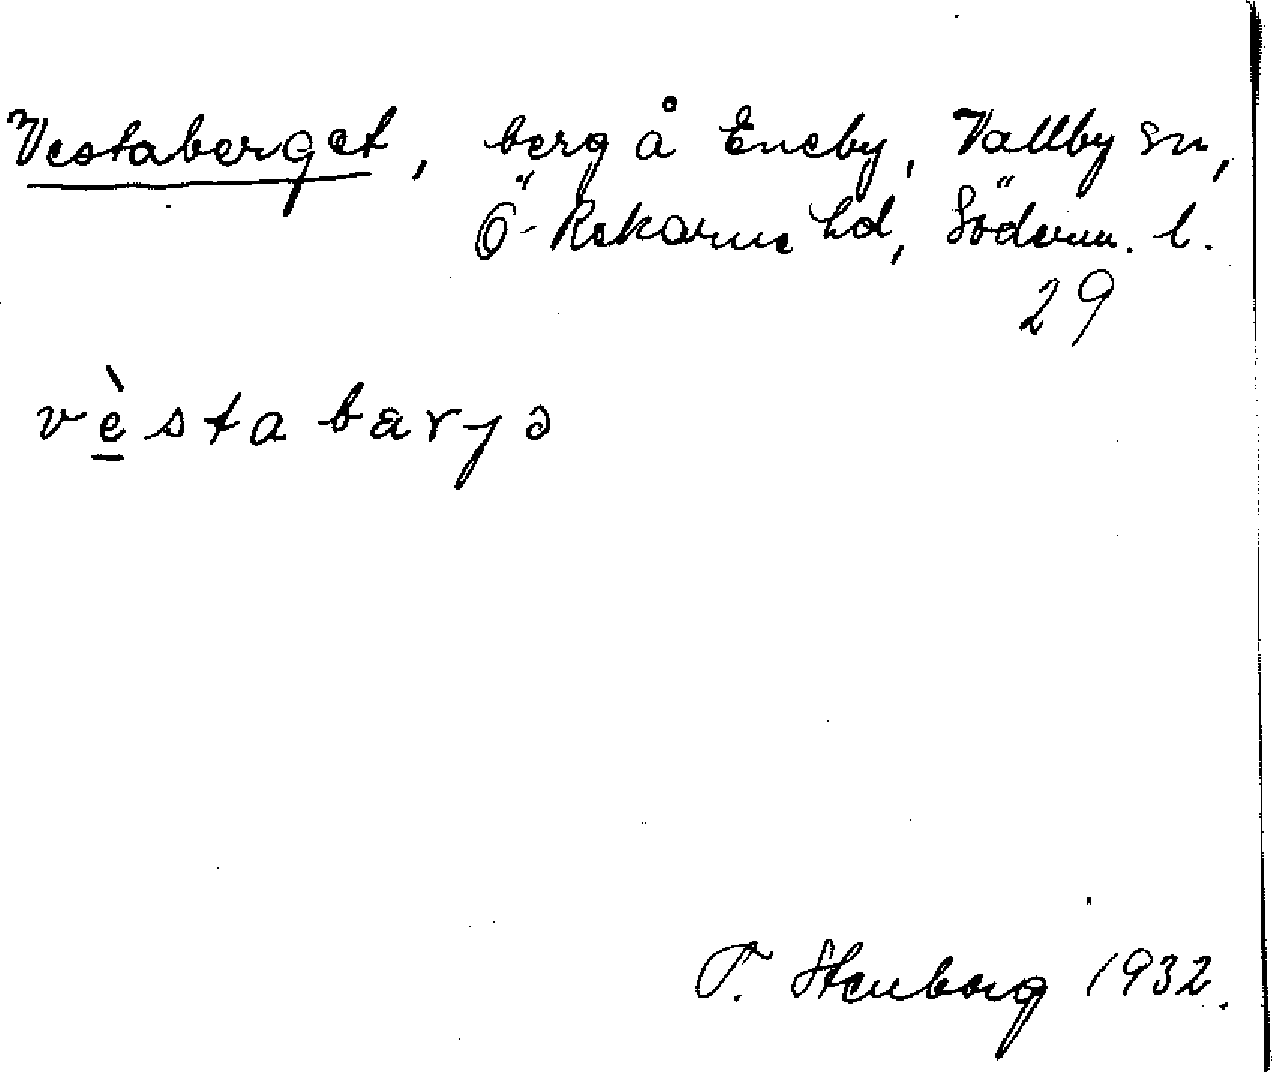 Vestaberget, berg å Eneby, Vallby sn,
Ö-Rekarne hd, Söderm. l.
29
vè̲stabärjə
T. Stenborg 1932.